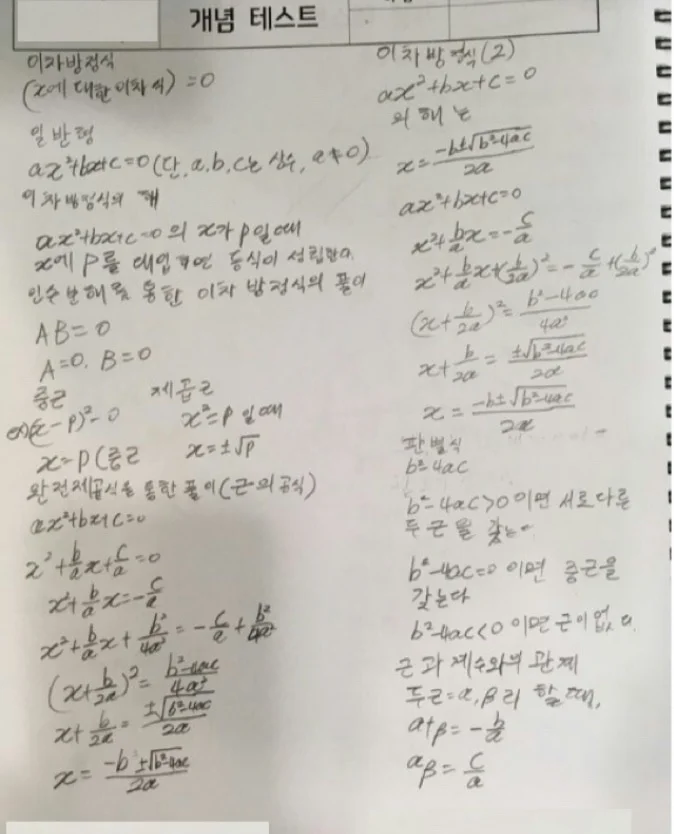 개념 테스트
이차방정식
(x에 대한 이차식) = 0
일반형
ax²+bx+c=0 (단, a, b, c는 상수, a≠0)
이차방정식의 해
ax²+bx+c=0 의 x가 p일 때
x에 p를 대입하면 등식이 성립한다.
인수분해를 통한 이차방정식의 풀이
AB=0
A=0, B=0
중근 제곱근
(x-p)²=0 x²=p 일 때
x=p (중근 x=±√p
완전제곱식을 통한 풀이 (근의 공식)
ax²+bx+c=0
x²+b/a x+c/a=0
x²+b/a x=-c/a
x²+b/a x+b²/4a²=-c/a+b²/4a²
(x+b/2a)²=b²-4ac/4a²
x+b/2a=±√b²-4ac/2a
x=-b±√b²-4ac/2a
이차방정식(2)
ax²+bx+c=0
의 해는
x=-b±√b²-4ac/2a
ax²+bx+c=0
x²+b/a x=-c/a
x²+b/a x+(b/2a)²=-c/a+(b/2a)²
(x+b/2a)²=b²-4ac/4a²
x+b/2a=±√b²-4ac/2a
x=-b±√b²-4ac/2a
판별식
b²-4ac
b²-4ac>0 이면 서로 다른
두 근을 갖는다
b²-4ac=0 이면 중근을
갖는다
b²-4ac<0 이면 근이 없다.
근과 계수와의 관계
두 근=α, β라 할 때,
α+β=-b/a
αβ=c/a